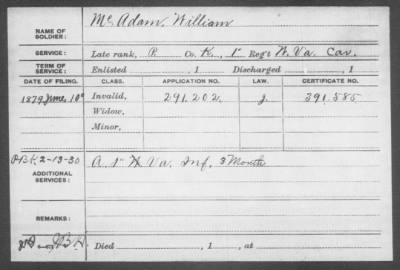 NAME OF SOLDIER: Mc Adam, William
SERVICE: Late rank, P Co. K, 1" Reg't W. Va. Cav.
TERM OF SERVICE: Enlisted , 1 Discharged , 1
DATE OF FILING. CLASS. APPLICATION NO. LAW. CERTIFICATE NO.
1879 June 10" Invalid, 291.202 J. 391.585
Widow,
Minor,
2-13-30
ADDITIONAL SERVICES: A 1" W Va. Inf, 3 Month
REMARKS:
Died , 1 , at